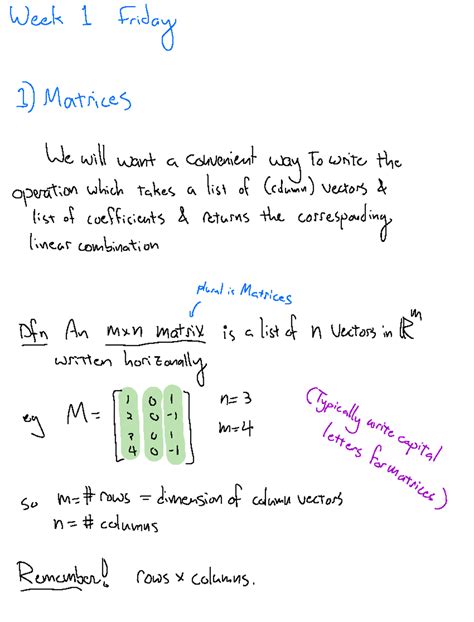 Week 1 Friday
1) Matrices
We will want a convenient way to write the
operation which takes a list of (column) vectors &
list of coefficients & returns the corresponding
linear combination
plural is Matrices
Dfn An m×n matrix is a list of n vectors in ℝ^m
written horizonally
eg M = [1 0 1
2 0 -1
3 0 1
4 0 -1]
n=3
m=4
(Typically write capital
letters for matrices)
so m = # rows = dimension of column vectors
n = # columns
Remember! rows × columns.